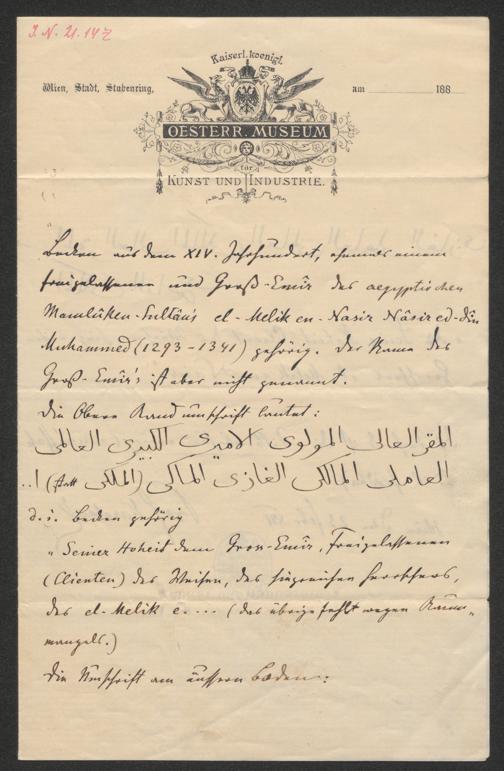 J. N. 21.147
Kaiserl. koenigl.
Wien, Stadt, Stubenring,
am 188
OESTERR. MUSEUM
für
KUNST UND INDUSTRIE.
Becken aus dem XIV. Jahrhundert, ehemals einem
freigelassenen und Groß-Emîr des aegyptischen
Mamlûken-Sultân's el-Melik en-Nasir Nâsir ed-dîn
Muhammed (1293-1341) gehörig. Der Name des
Groß-Emîr's ist aber nicht genannt.
Die Obere Randumschrift lautet:
المقر العالى المولوى الاميرى الكبيرى العالمى
العاملى المالكى الغازى المالكى (statt الملكى) ا...
d. i. Becken gehörig
„Seiner Hoheit dem Gross-Emîr, Freigelassenen
(Clienten) des Weisen, des siegreichen Herrschers,
des el-Melik e.... (das übrige fehlt wegen Raum-
mangels.)
Die Umschrift am äussern Boden: